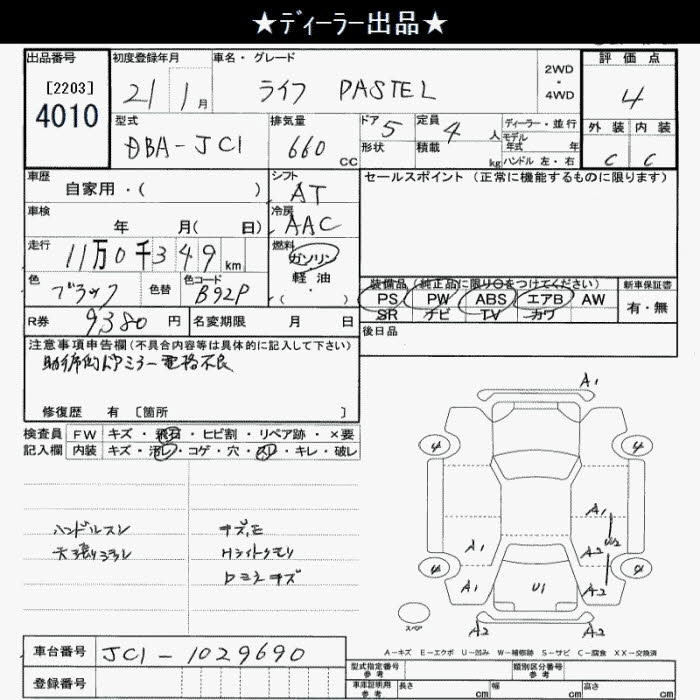 ★ディーラー出品★
出品番号 初度登録年月 車名・グレード 評価点
[2203] 2WD
4010 21 1月 ライフ PASTEL ・ 4
4WD
型式 排気量 ドア 定員 ディーラー・並行 外装 内装
DBA-JC1 660 CC 5 4人 モデル
年式 年 C C
形状 積載 kg ハンドル 左・右
車歴 シフト セールスポイント (正常に機能するものに限ります)
自家用・( ) AT
車検 冷房
年 月( 日) AAC
走行 燃料
11万0千349km ガソリン
色 色替 色コード 軽油
ブラック B92P ・( )
装備品 (純正品に限り○をつけてください) 新車保証書
PS PW ABS エアB AW 有・無
SR ナビ TV カワ
R券 9,380円 名変期限 月 日 後日品
注意事項申告欄(不具合内容等は具体的に記入して下さい)
助手席ドアミラー電格不良
修復歴 有 〔箇所 〕
検査員 FW キズ・飛石・ヒビ割・リペア跡・×要
記入欄 内装 キズ・汚レ・コゲ・穴・スレ・キレ・破レ
A1
4 4
A1
ハンドルスレ キズ,E U2
A1 A2
Hライトクモリ
4 4
Dミラキズ
A1 U1 A2
スペア A2 A2
A-キズ E-エクボ U-凹み W-補修跡 S-サビ C-腐食 XX-交換済
車台番号 JC1-1029690
型式指定番号 類別区分番号
参考 参考
登録番号
車庫証明用 長さ cm 幅 cm 高さ cm
参考